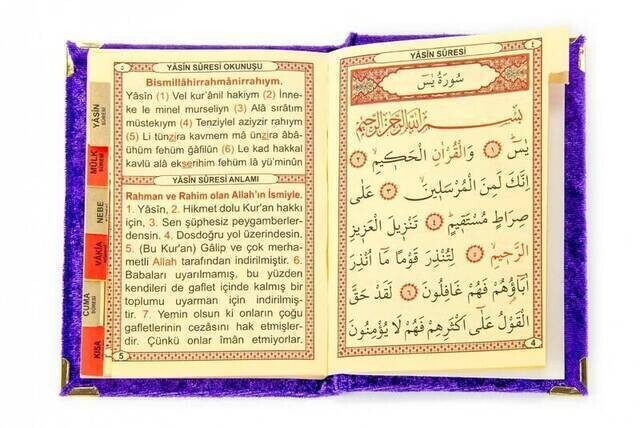 YÂSİN SÛRESİ
٤
سُورَةُ يٰسٓ
بِسْمِ اللّٰهِ الرَّحْمٰنِ الرَّحِيمِ
يٰسٓ ﴿١﴾ وَالْقُرْاٰنِ الْحَكِيمِ ﴿٢﴾
اِنَّكَ لَمِنَ الْمُرْسَلِينَ ﴿٣﴾ عَلٰى
صِرَاطٍ مُسْتَقِيمٍ ﴿٤﴾ تَنْزِيلَ الْعَزِيزِ
الرَّحِيمِ ﴿٥﴾ لِتُنْذِرَ قَوْمًا مَٓا اُنْذِرَ
اٰبَٓاؤُ۬هُمْ فَهُمْ غَافِلُونَ ﴿٦﴾ لَقَدْ حَقَّ
الْقَوْلُ عَلٰٓى اَكْثَرِهِمْ فَهُمْ لَا يُؤْمِنُونَ
4
YÂSİN SÛRESİ OKUNUŞU
Bismillâhirrahmânirrahıym.
Yâsîn (1) Vel kur’ânil hakiym (2) İnne-
ke le minel murseliyn (3) Alâ sırâtım
müstekıym (4) Tenziylel aziyzir rahıym
(5) Li tünzira kavmem mâ ünzira âbâ-
ühüm fehüm ğâfilûn (6) Le kad hakkal
kavlü alâ ekserihim fehüm lâ yü’minûn
YÂSİN SÛRESİ ANLAMI
Rahman ve Rahim olan Allah’ın İsmiyle.
1. Yâsîn, 2. Hikmet dolu Kur'an hakkı
için, 3. Sen şüphesiz peygamberler-
densin. 4. Dosdoğru yol üzerindesin.
5. (Bu Kur'an) Gâlip ve çok merha-
metli Allah tarafından indirilmiştir. 6.
Babaları uyarılmamış, bu yüzden
kendileri de gaflet içinde kalmış bir
toplumu uyarman için indirilmiş-
tir. 7. Yemin olsun ki onların çoğu
gafletlerinin cezasını hak etmişler-
dir. Çünkü onlar îmân etmiyorlar.
5
YÂSİN
SÛRESİ
MÜLK
SÛRESİ
NEBE
VÂKIA
CUMA
SÛRESİ
KISA